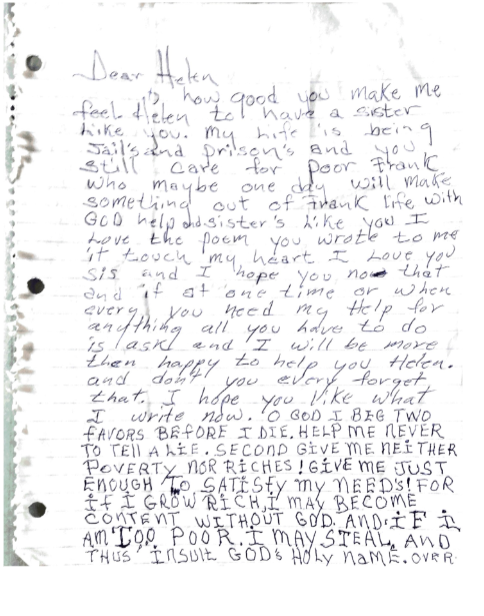 Dear Helen
how good you make me
feel Helen to have a sister
Like you. my Life is being
Jail's and prison's and you
Still Care for Poor Frank
who maybe one day will make
something out of Frank Life with
GOD help and sister's Like you I
Love the poem you wrote to me
it touch my heart I Love you
Sis and I hope you now that
and if at one time or when
every you need my Help for
anything all you have to do
is ask! and I will be more
then happy to help you Helen.
and don't you every forget
that. I hope you like what
I write now. O GOD I BEG TWO
fAVORS BEFORE I DIE. HELP ME NEVER
TO TEll A LIE. SECOND GIVE ME NEITHER
POVERTY NOR RICHES! GIVE ME JUST
ENOUGH TO SATISfy my NEEDS! FOR
if I GROW RICH, I MAY BECOME
CONTENT WITHOUT GOD. AND iF i
AM TOO POOR. I MAY STEAL, AND
THUS INSULT GOD'S HOLY NAME. OVER